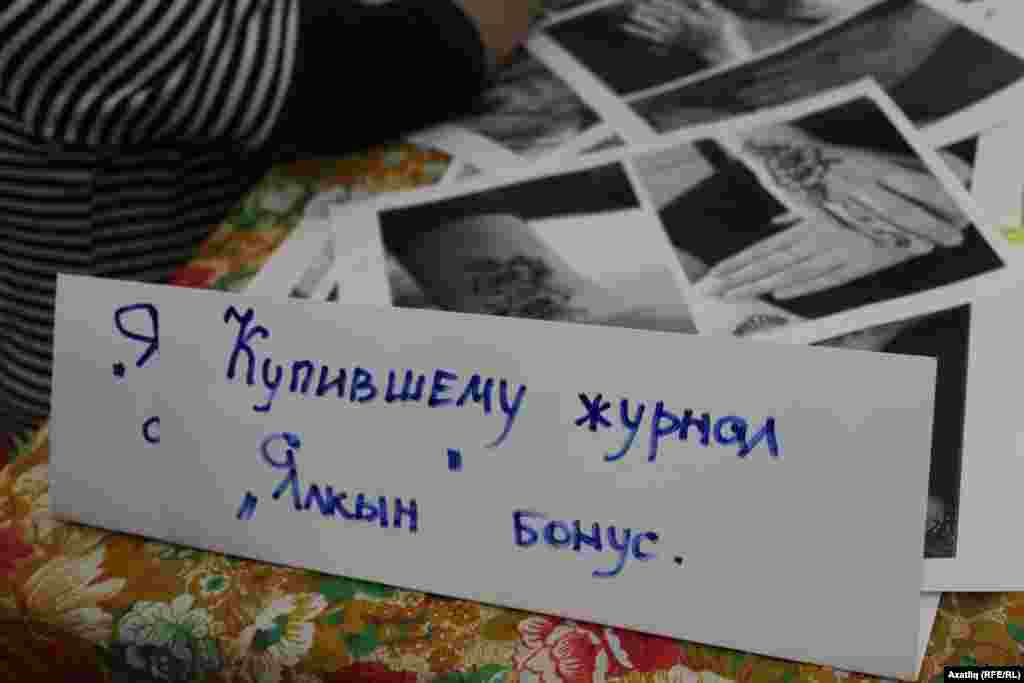 Я Купившему журнал
с „Ялкын" бонус.
Azatliq (RFE/RL)